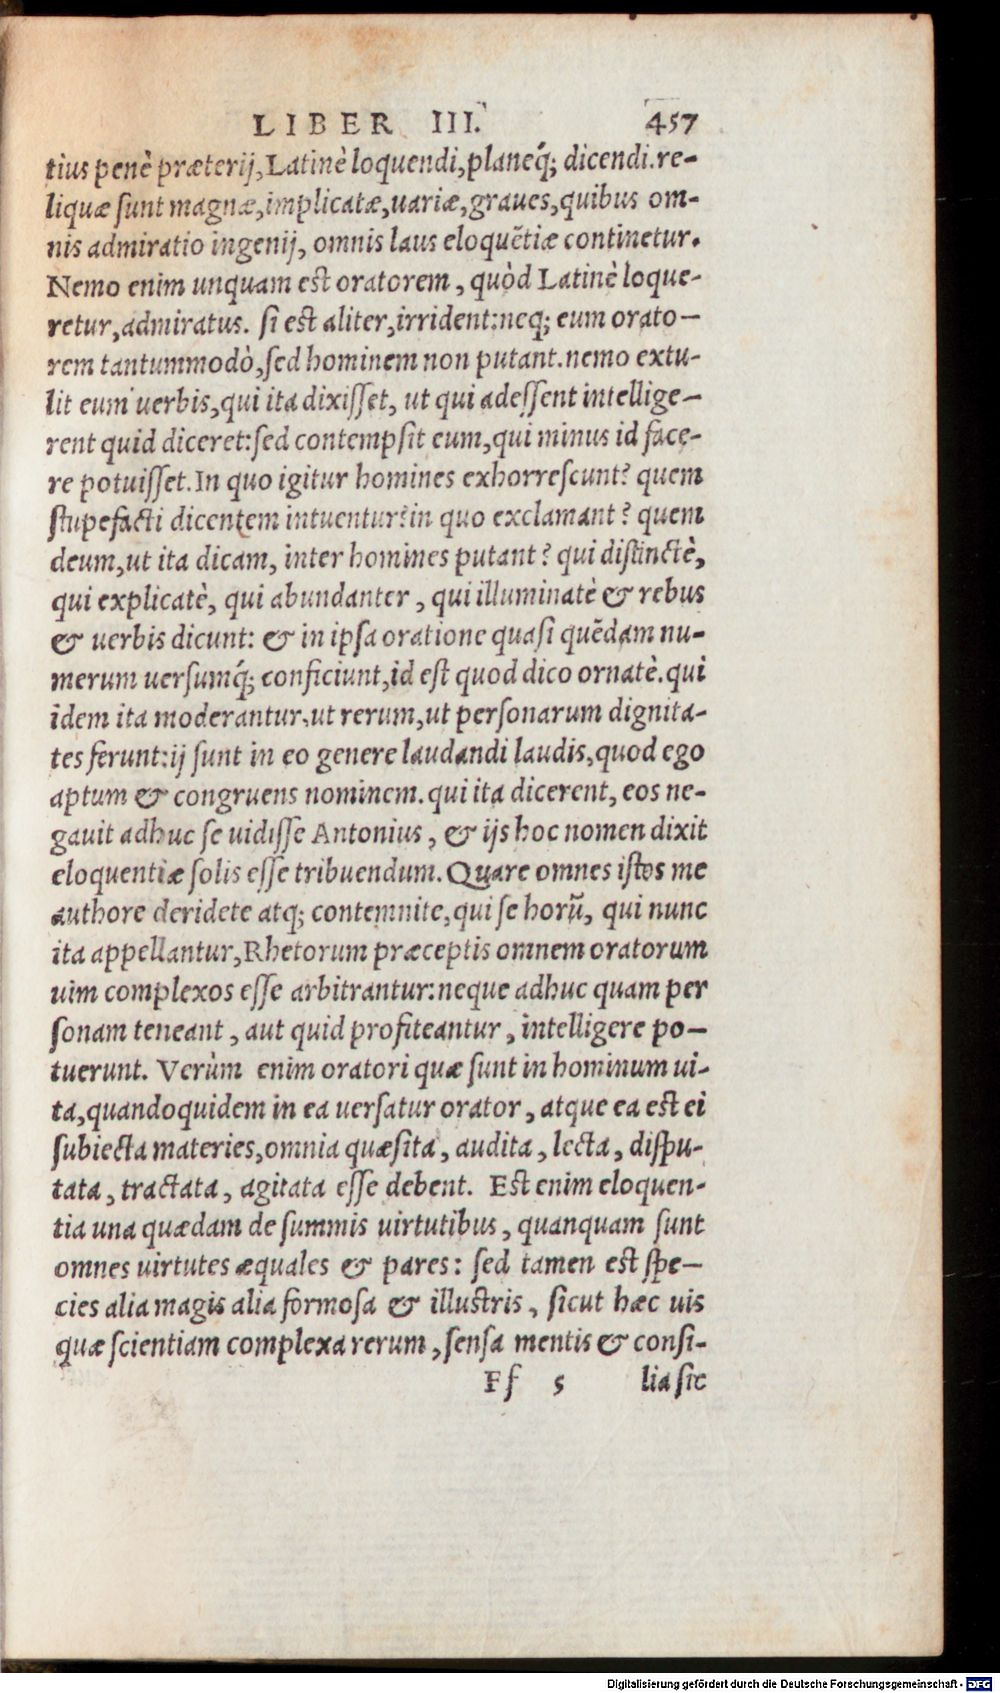 LIBER III. 457
tius penè præterij, Latinè loquendi, planeq́; dicendi. re-
liquæ ſunt magnæ, implicatæ, uariæ, graues, quibus om-
nis admiratio ingenij, omnis laus eloquẽtiæ continetur.
Nemo enim unquam est oratorem, quòd Latinè loque-
retur, admiratus. ſi est aliter, irrident: neq; eum orato-
rem tantummodò, ſed hominem non putant. nemo extu-
lit eum uerbis, qui ita dixiſſet, ut qui adeſſent intellige-
rent quid diceret: ſed contempſit eum, qui minus id face-
re potuiſſet. In quo igitur homines exhorreſcunt? quem
ſtupefacti dicentem intuentur? in quo exclamant? quem
deum, ut ita dicam, inter homines putant? qui diſtinctè,
qui explicatè, qui abundanter, qui illuminatè & rebus
& uerbis dicunt: & in ipſa oratione quaſi quẽdam nu-
merum uerſumq́; conficiunt, id eſt quod dico ornatè. qui
idem ita moderantur, ut rerum, ut perſonarum dignita-
tes ferunt: ij ſunt in eo genere laudandi laudis, quod ego
aptum & congruens nominem. qui ita dicerent, eos ne-
gauit adhuc ſe uidiſſe Antonius, & ijs hoc nomen dixit
eloquentiæ ſolis eſſe tribuendum. Quare omnes iſtos me
authore deridete atq; contemnite, qui ſe horũ, qui nunc
ita appellantur, Rhetorum præceptis omnem oratorum
uim complexos eſſe arbitrantur: neque adhuc quam per
ſonam teneant, aut quid profiteantur, intelligere po-
tuerunt. Verùm enim oratori quæ ſunt in hominum ui-
ta, quandoquidem in ea uerſatur orator, atque ea est ei
ſubiecta materies, omnia quæſita, audita, lecta, diſpu-
tata, tractata, agitata eſſe debent. Est enim eloquen-
tia una quædam de ſummis uirtutibus, quanquam ſunt
omnes uirtutes æquales & pares: ſed tamen est ſpe-
cies alia magis alia formoſa & illuſtris, ſicut hæc uis
quæ ſcientiam complexa rerum, ſenſa mentis & conſi-
Ff 5 lia ſic
Digitalisierung gefördert durch die Deutsche Forschungsgemeinschaft - DFG